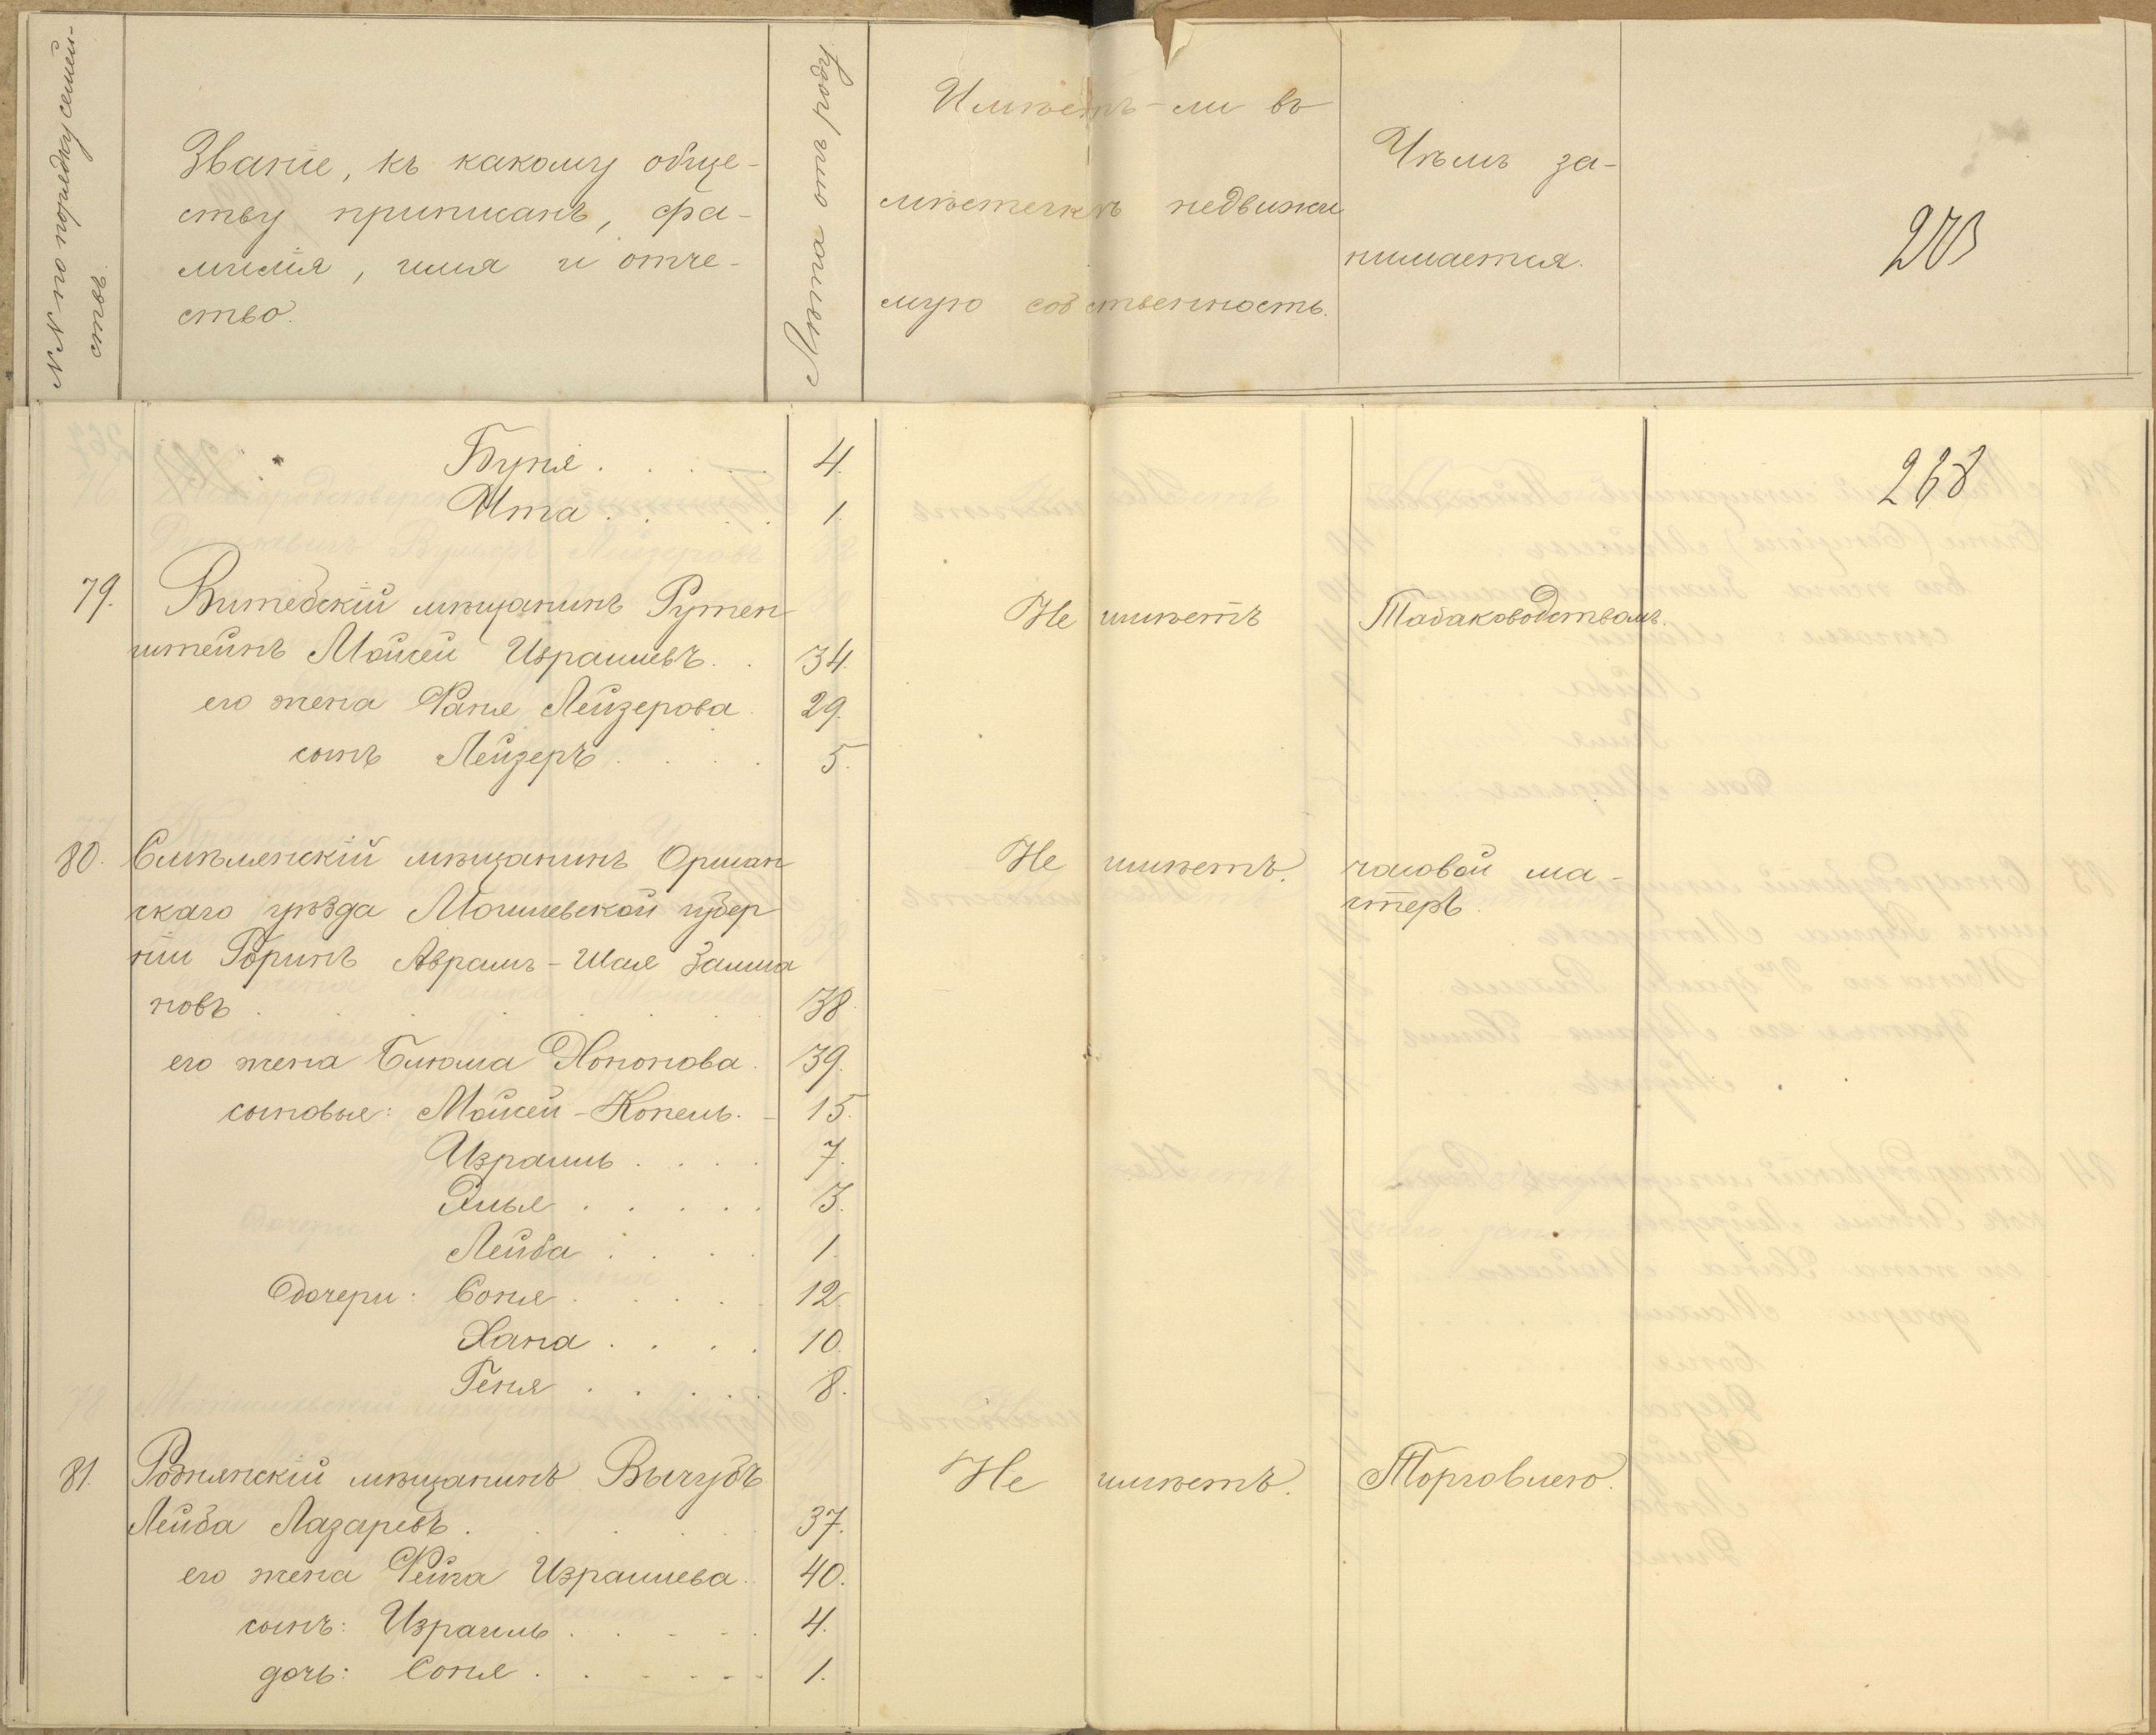 №№ по порядку семей-
ствъ.
Званіе, къ какому обще-
ству приписанъ, фа-
милія, имя и отче-
ство.
Лѣта отъ роду
Имѣетъ-ли въ
мѣстечкѣ недвижи
мую собственность.
Чѣмъ за-
нимается.
203
268
Буня . . . . . 4.
Ита . . . . 1.
79. Витебскій мѣщанинъ Рутен
штейнъ Мойсей Израилевъ. . 34.
Не имѣетъ
Табаководствомъ.
его жена Фаня Лейзерова. 29.
сынъ Лейзеръ . . . . 5.
80. Смѣлянскій мѣщанинъ Оршан
скаго уѣзда Могилевской губер
ніи Рюринъ Аврамъ-Шая Залма
новъ . . . . . . . 38.
Не имѣетъ.
часовой ма-
стеръ.
его жена Блюма Хононова. 39.
сыновья: Мойсей-Копель. - 15.
Израиль . . . . 7.
Элья . . . . . 3.
Лейба . . . . 1.
Дочери: Соня . . . . . 12.
Хана . . . . 10.
Геня . . . . . 8.
81. Роднянскій мѣщанинъ Вычубъ
Лейба Лазаревъ . . . . . 37.
Не имѣетъ.
Торговлею.
его жена Фейга Израилева. 40.
сынъ: Израиль . . . . . 4.
дочь: Соня . . . . . . 1.